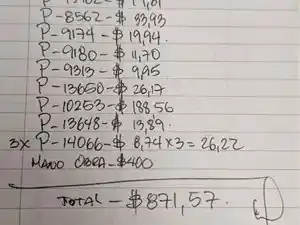 P-8562-$ 33,93
P-9174-$ 19,94.
P-9180-$ 11,70
P-9313-$ 9,95
P-13650-$ 26,17
P-10253-$ 188.56
P-13648-$ 13,89.
3x P-14066-$ 8,74x3=26,22
MANO OBRA-$400
TOTAL-$871,57.